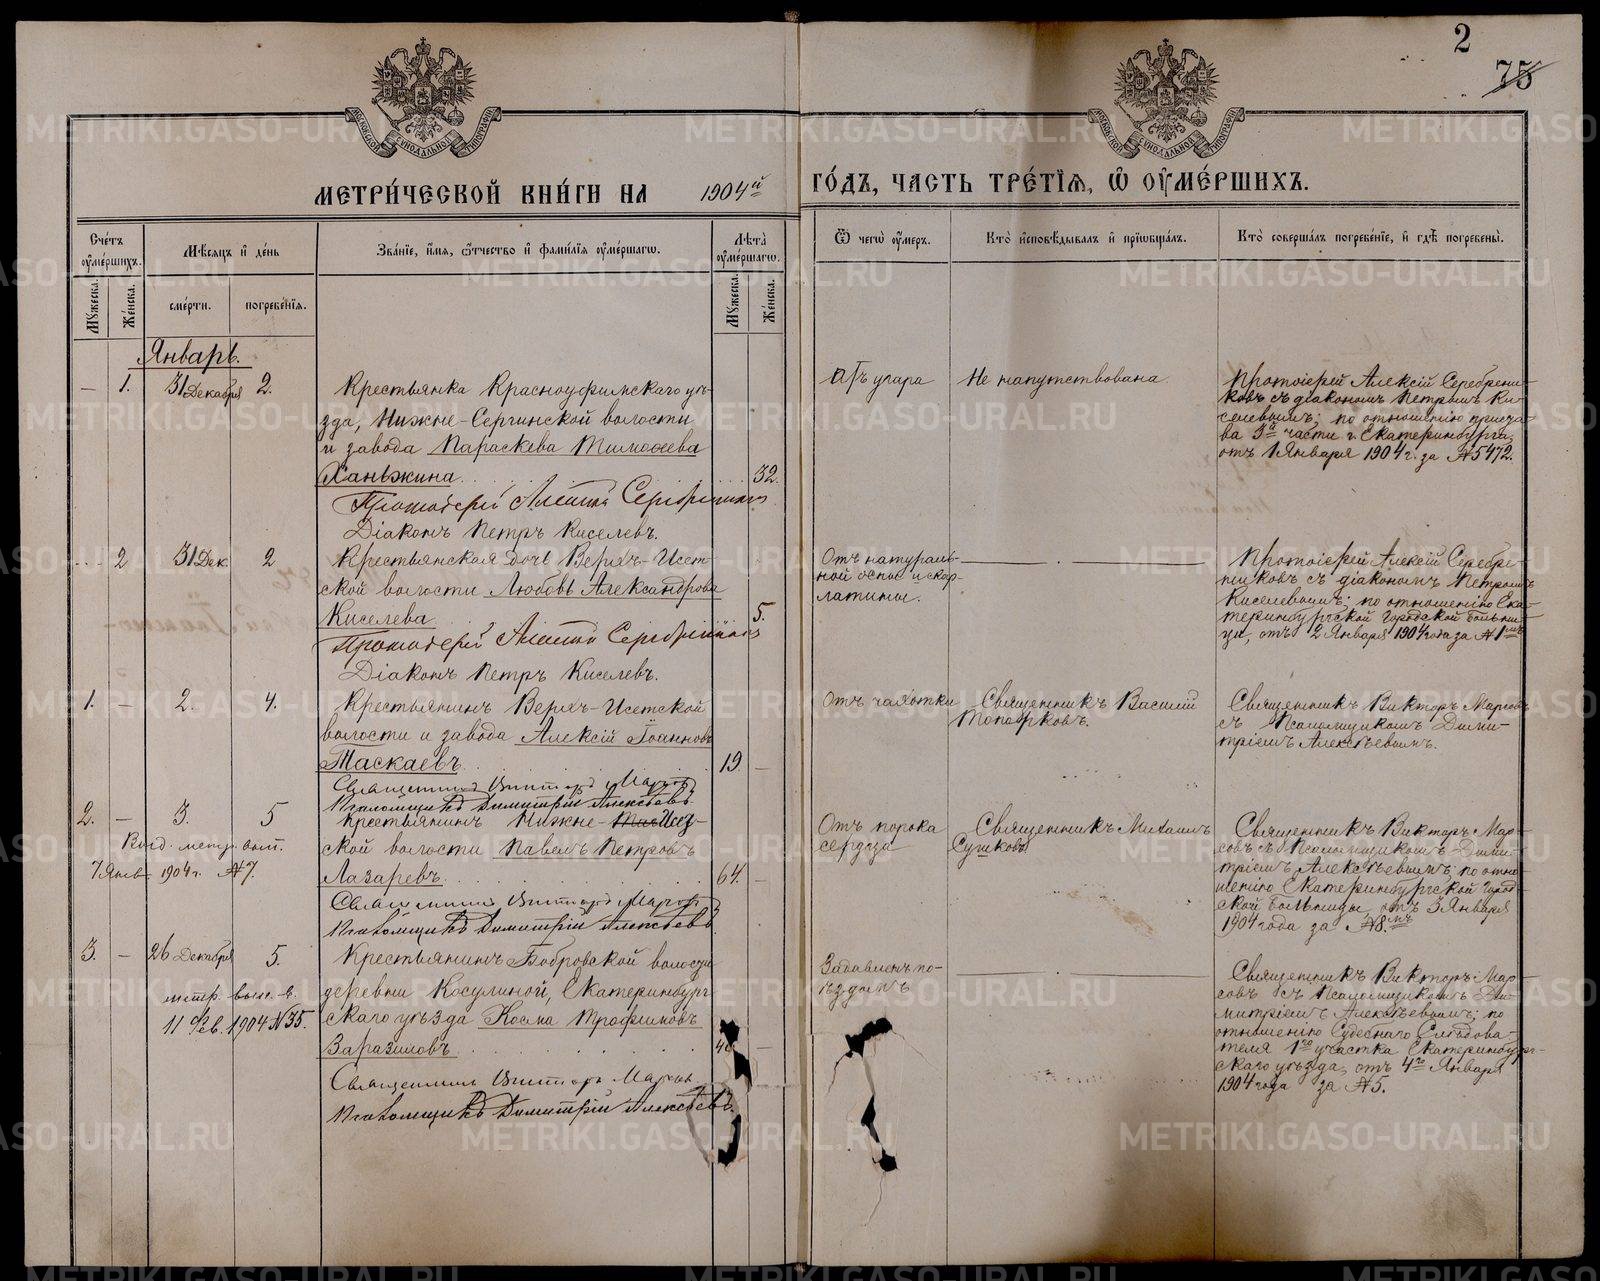 2
75
МЕТРИ́ЧЕСКОЙ КНИ́ГИ НА 1904й ГО́ДЪ, ЧАСТЬ ТРЕ́ТІѦ, Ѡ ОУМЕ́РШИХЪ.
Сче́тъ оуме́ршихъ.
Му́жеска.
Же́нска.
Мѣсѧцъ и де́нь
сме́рти.
погребе́нїѧ.
Зва́нїе, и́мѧ, ѻ́тчество и фами́лїѧ оуме́ршагѡ.
Лѣта̀ оуме́ршагѡ.
Му́жеска.
Же́нска.
Ѿ чегѡ̀ оу́меръ.
Кто̀ исповѣ́дывалъ и прїѡбща́лъ.
Кто̀ соверша́лъ погребе́нїе, и гдѣ̀ погребены̀.
Январь.
— 1. 31 Декабря 2.
Крестьянка Красноуфимскаго уѣ-
зда, Нижне-Сергинской волости
и завода Параскева Тимоѳеева
Ханьжина 32.
Протоіерей Алексій Серебрениковъ
Діаконъ Петръ Киселевъ.
Отъ угара
Не напутствована.
Протоіерей Алексій Серебрени-
ковъ съ діакономъ Петромъ Ки-
селевымъ; по отношенію приста-
ва 3й части г. Екатеринбурга,
отъ 1 Января 1904 г. за № 5472.
2 31 Дек. 2
Крестьянская дочь Верхъ-Исет-
ской волости Любовь Александрова
Киселева 5.
Протоіерей Алексій Серебрениковъ
Діаконъ Петръ Киселевъ.
Отъ натураль-
ной оспы и скар-
латины.
Протоіерей Алексій Серебре-
никовъ съ діакономъ Петромъ
Киселевымъ; по отношенію Ека-
теринбургской городской больни-
цы, отъ 2 Января 1904 года за № 1мъ
1. — 2. 4.
Крестьянинъ Верхъ-Исетской
волости и завода Алексій Іоанновъ
Таскаевъ 19 —
Священникъ Викторъ Марсовъ
Псаломщикъ Димитрій Алексѣевъ.
Отъ чахотки
Священникъ Василій
Топорковъ.
Священникъ Викторъ Марсовъ
съ псаломщикомъ Дими-
тріемъ Алексѣевымъ.
2. — 3. 5
Выд. метр. вып.
7 Янв. 1904 г. № 7.
Крестьянинъ Нижне-Исет-
ской волости Павелъ Петровъ
Лазаревъ 64. —
Священникъ Викторъ Марсовъ
Псаломщикъ Димитрій Алексѣевъ.
Отъ порока
сердца
Священникъ Михаилъ
Сушковъ.
Священникъ Викторъ Мар-
совъ съ псаломщикомъ Дими-
тріемъ Алексѣевымъ; по отно-
шенію Екатеринбургской город-
ской больницы отъ 3 Января
1904 года за № 8.мъ
3. — 26 Декабря 5.
метр. вып. в.
11 Фев. 1904 N 35.
Крестьянинъ Бобровской волости
деревни Косулиной, Екатеринбург-
скаго уѣзда Косма Трофимовъ
Заразиловъ —
Священникъ Викторъ Марсовъ
Псаломщикъ Димитрій Алексѣевъ.
Задавленъ по-
ѣздомъ
Священникъ Викторъ Мар-
совъ съ псаломщикомъ Ди-
митріемъ Алексѣевымъ; по
отношенію Судебнаго Слѣдова-
теля 1го участка Екатеринбург-
скаго уѣзда, отъ 4го Января
1904 года за № 5.
METRIKI.GASO-URAL.RU